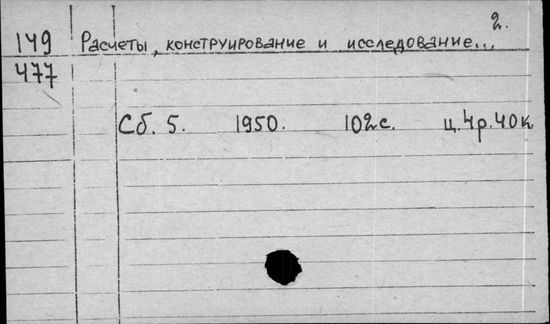 2.
149 Расчеты, конструирование и исследование...
477
Сб. 5. 1950. 102с. ц.4р.40к.